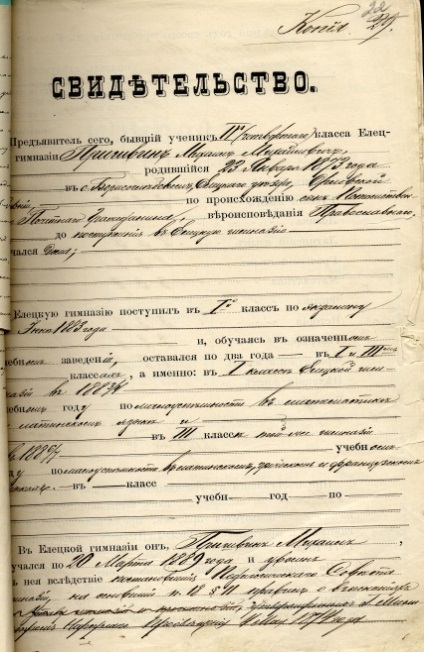 Копія
22
СВИДѢТЕЛЬСТВО.
Предъявитель сего, бывшій ученикъ IVго (четвертаго) класса Елец-
гимназіи Пришвинъ Михаилъ Михайловичъ,
родившійся 23 Января 1873 года
въ с. Елецкаго уѣзда, Орловской
по происхожденію сынъ Потомствен
Почетнаго Гражданина, вѣроисповѣданія Православнаго,
до поступленія въ Елецкую гимназію
чался дома;
Елецкую гимназію поступилъ въ Iй классъ по экзамену
1883 года
и, обучаясь въ означенномъ
чебномъ заведеніи, оставался по два года — въ I и III
классахъ, а именно: въ I классѣ Елецкой гим-
назіи въ 1883/4
чебномъ году по малоуспѣшности въ математикѣ
латинскомъ языкѣ и
въ III классѣ той же гимназіи
учебномъ
по малоуспѣшности въ латинскомъ, греческомъ и французскомъ
въ — классѣ
учебн — год — по —
Въ Елецкой гимназіи онъ, Пришвинъ Михаилъ,
учался по 20 Марта 1889 года и уволенъ
нея вслѣдствіе постановленія Педагогическаго Совѣта
на основаніи п. 18 § правилъ о взысканіяхъ
Народнаго Просвѣщенія 4 Мая 1874 года